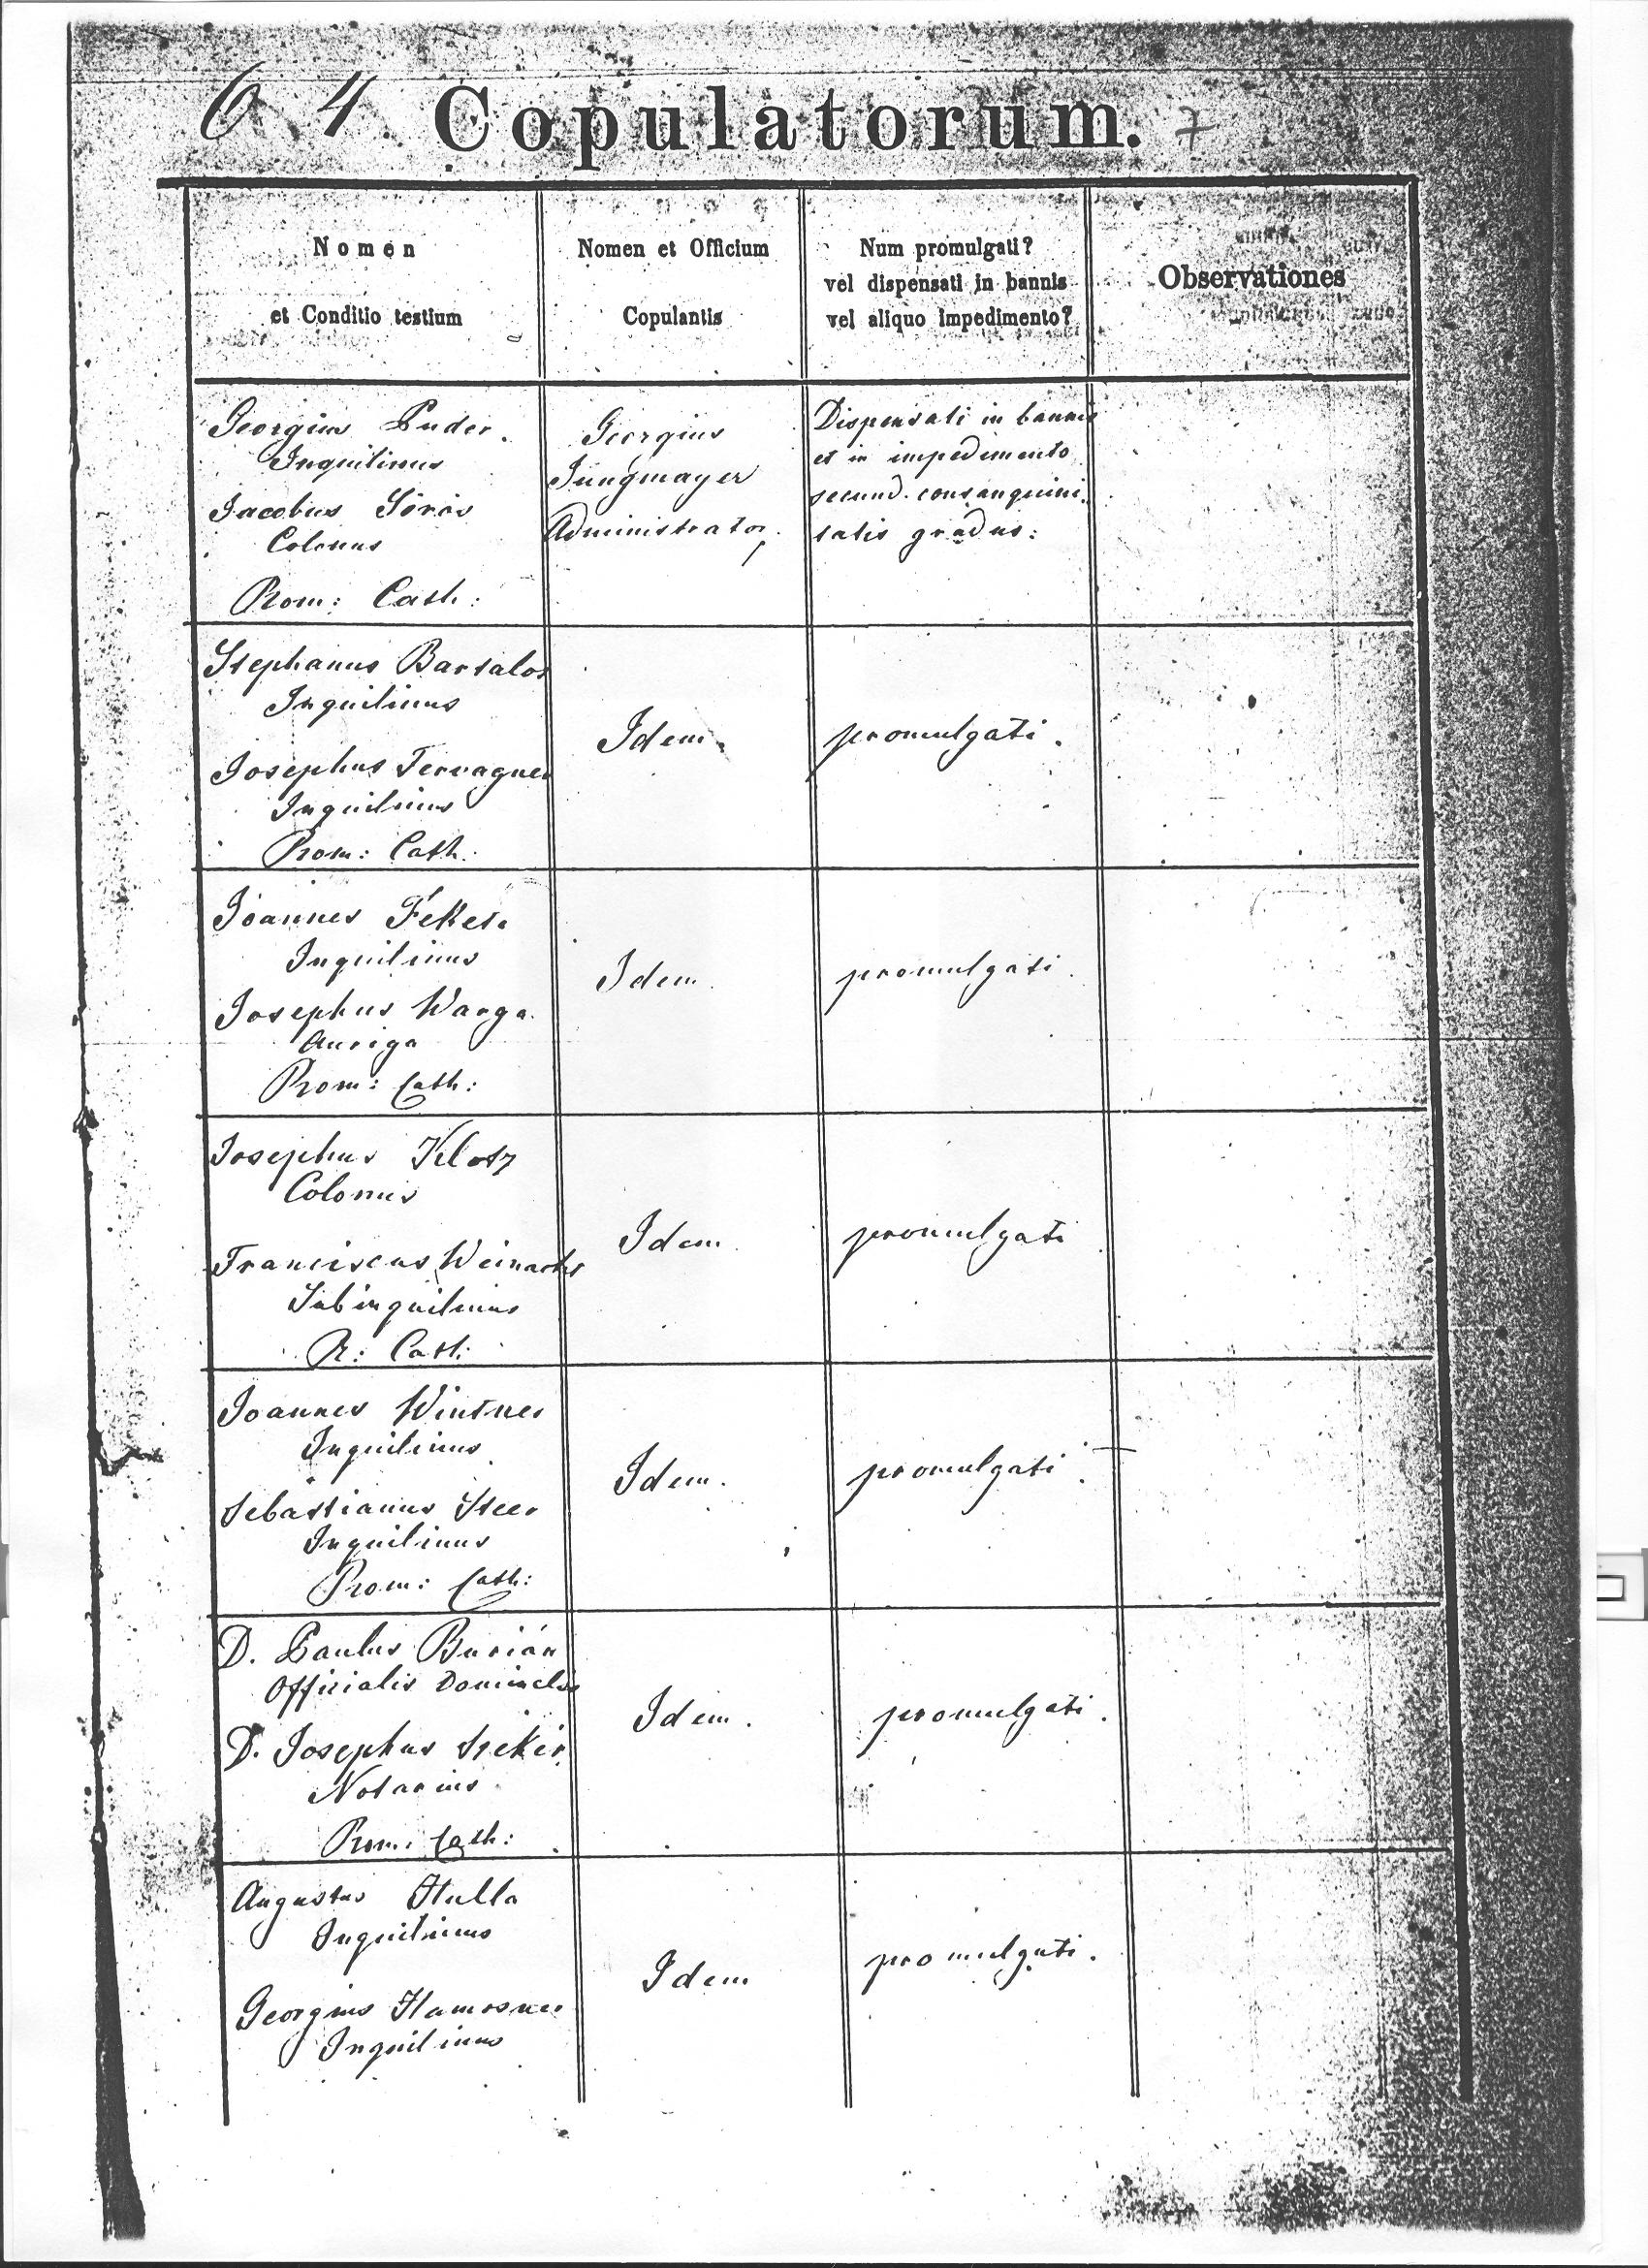 64. Copulatorum. 7
Nomen
et Conditio testium
Nomen et Officium
Copulantis
Num promulgati?
vel dispensati in bannis
vel aliquo impedimento?
Observationes
Georgius Puder.
Inquilinus
Jacobus
Colonus
Rom: Cath:
Georgius
Jungmayer
Administrator
Dispensati in bannis
et in impedimento
secund. consanguini
tatis gradus:
Stephanus Bartalos
Inquilinus
Josephus
Inquilinus
Rom: Cath:
Idem.
promulgati.
Joannes Fekete
Inquilinus
Josephus Warga
Auriga
Rom: Cath:
Idem.
promulgati.
Josephus Klotz
Colonus
Franciscus
Subinquilinus
R: Cath:
Idem
promulgati
Joannes Wintner
Inquilinus
Sebastianus
Inquilinus
Rom: Cath:
Idem.
promulgati.
D. Paulus Burián
Officialis
D. Josephus
Notarius
Rom: Cath:
Idem.
promulgati.
Augustus
Inquilinus
Georgius
Inquilinus
Idem
promulgati.